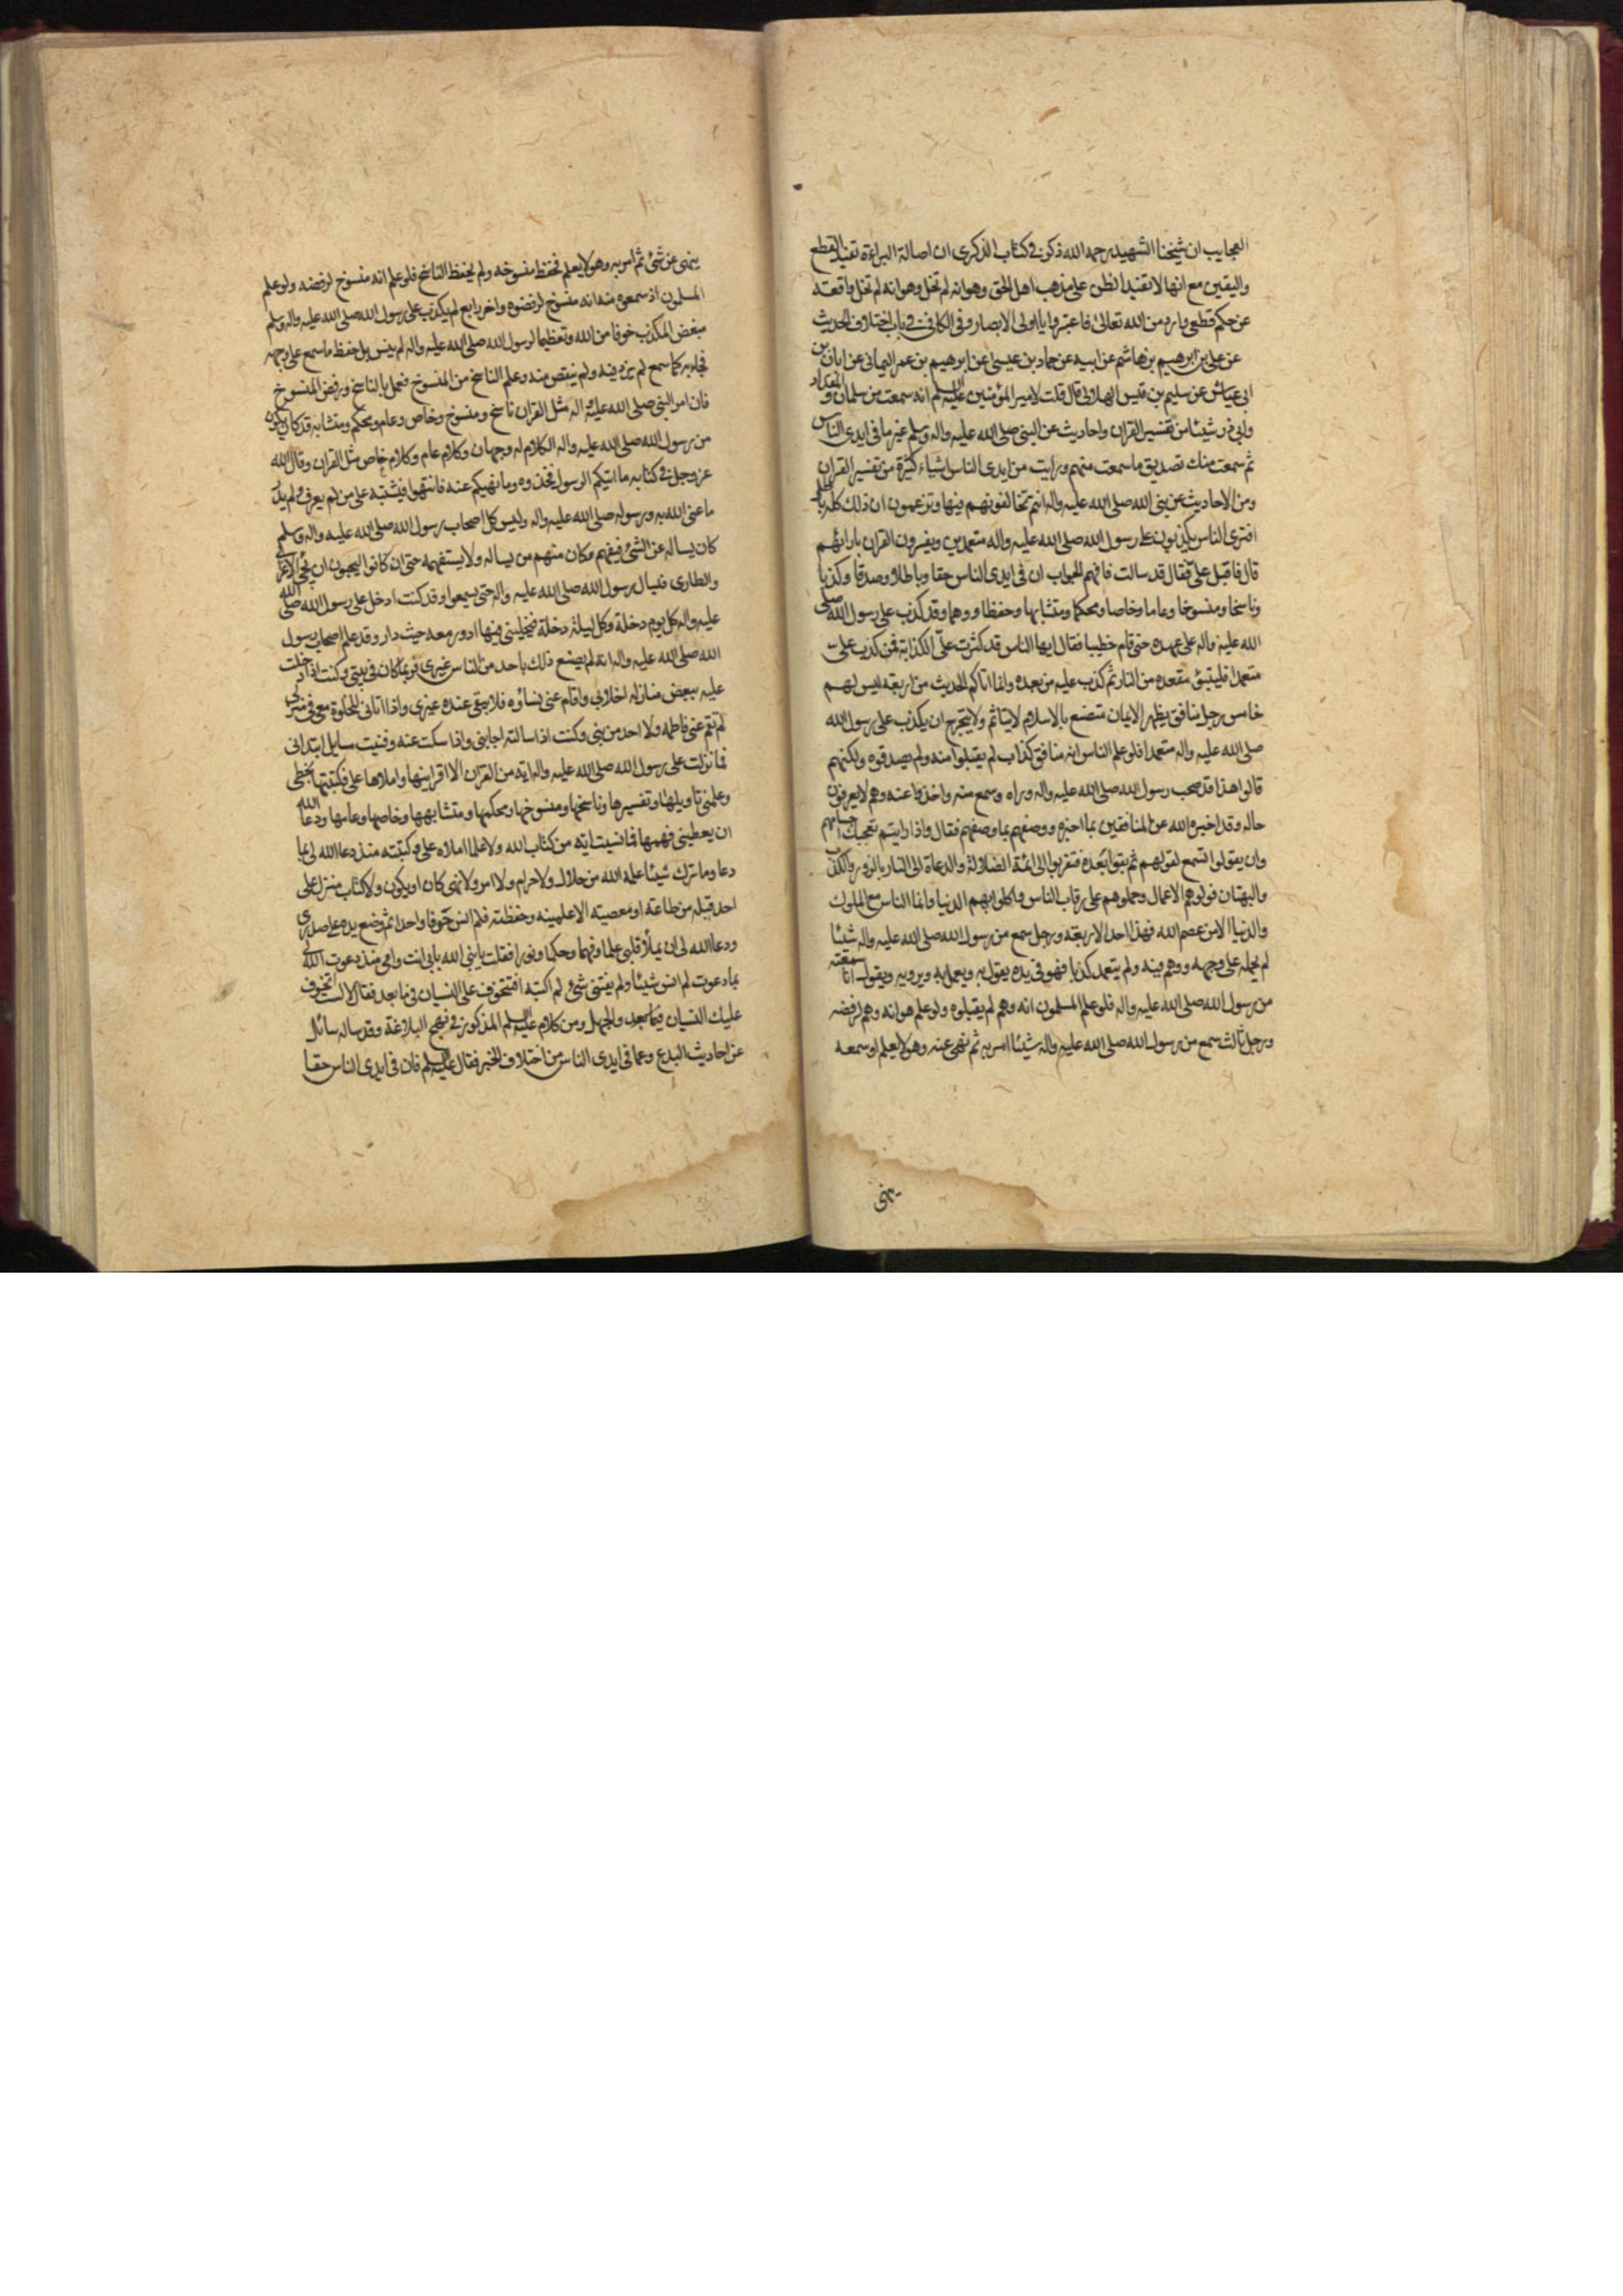 العجايب ان شيخنا الشهيد رحمه الله ذكر فى كتاب الذكرى ان اصالة البراءة تفيد القطع
واليقين مع انها لا تفيد الظن على مذهب اهل الحق وهو انه لم تخل وهو انه لم تخل واقعة
عن حكم قطعى وارد من الله تعالى فاعتبروا يا اولى الابصار وفى الكافى فى باب اختلاف الحديث
عن على بن ابرهيم بن هاشم عن ابيه عن حماد بن عيسى عن ابرهيم بن عمر اليمانى عن ابان بن
ابى عياش عن سليم بن قيس الهلالى قال قلت لامير المؤمنين عليه السلم انه سمعت من سلمان والمقداد
وابى ذر شيئا من تفسير القران واحاديث عن النبى صلى الله عليه واله وسلم غير ما فى ايدى الناس
ثم سمعت منك تصديق ما سمعت منهم ورايت من ايدى الناس اشياء كثيرة من تفسير القران
ومن الاحاديث عن نبى الله صلى الله عليه واله انتم تخالفونهم فيها وتزعمون ان ذلك كله باطل
افترى الناس يكذبون على رسول الله صلى الله عليه واله متعمدين ويفسرون القران بارائهم
قال فاقبل على فقال قد سالت فافهم الجواب ان فى ايدى الناس حقا وباطلا وصدقا وكذبا
وناسخا ومنسوخا وعاما وخاصا ومحكما ومتشابها وحفظا ووهما وقد كذب على رسول الله صلى
الله عليه واله على عهده حتى قام خطيبا فقال ايها الناس قد كثرت على الكذابة فمن كذب على
متعمدا فليتبؤ مقعده من النار ثم كذب عليه من بعده وانما اتاكم الحديث من اربعة ليس لهم
خامس رجل منافق يظهر الايمان متصنع بالاسلام لا يتاثم ولا يتحرج ان يكذب على رسول الله
صلى الله عليه واله متعمدا فلو علم الناس انه منافق كذاب لم يقبلوا منه ولم يصدقوه ولكنهم
قالوا هذا قد صحب رسول الله صلى الله عليه واله وراه وسمع منه واخذوا عنه وهم لا يعرفون
حاله وقد اخبره الله عن المنافقين بما اخبره ووصفهم بما وصفهم فقال واذا رايتهم تعجبك اجسامهم
وان يقولوا تسمع لقولهم ثم بقوا بعده فتقربوا الى ائمة الضلالة والدعاة الى النار بالزور والكذب
والبهتان فولوهم الاعمال وحملوهم على رقاب الناس واكلوا بهم الدنيا وانما الناس مع الملوك
والدنيا الا من عصم الله فهذا احد الاربعة ورجل سمع من رسول الله صلى الله عليه واله شيئا
لم يحمله على وجهه ووهم فيه ولم يتعمد كذبا فهو فى يده يقول به ويعمل به ويرويه ويقول انا سمعته
من رسول الله صلى الله عليه واله فلو علم المسلمون انه وهم لم يقبلوه ولو علم هو انه وهم لرفضه
ورجل ثالث سمع من رسول الله صلى الله عليه واله شيئا امر به ثم نهى عنه وهو لا يعلم او سمعه
ينهى
ينهى عن شئ ثم امر به وهو لا يعلم فحفظ منسوخه ولم يحفظ الناسخ فلو علم انه منسوخ لرفضه ولو علم
المسلمون اذ سمعوه منه انه منسوخ لرفضوه واخر رابع لم يكذب على رسول الله صلى الله عليه واله وسلم
مبغض المكذب خوفا من الله وتعظيما لرسول الله صلى الله عليه واله لم ينس بل حفظ ما سمع على وجهه
فجاء به كما سمع لم يزد فيه ولم ينقص منه وعلم الناسخ من المنسوخ فعمل بالناسخ ورفض المنسوخ
فان امر النبى صلى الله عليه واله مثل القران ناسخ ومنسوخ وخاص وعام ومحكم ومتشابه قد كان يكون
من رسول الله صلى الله عليه واله الكلام له وجهان وكلام عام وكلام خاص مثل القران وقال الله
عز وجل فى كتابه ما اتيكم الرسول فخذوه وما نهيكم عنه فانتهوا فيشتبه على من لم يعرف ولم يدر
ما عنى الله به ورسوله صلى الله عليه واله وليس كل اصحاب رسول الله صلى الله عليه واله وسلم
كان يساله عن الشئ فيفهم وكان منهم من يساله ولا يستفهمه حتى ان كانوا ليحبون ان يجئ الاعرابى
والطارى فيسال رسول الله صلى الله عليه واله حتى يسمعوا وقد كنت ادخل على رسول الله صلى الله
عليه واله كل يوم دخلة وكل ليلة دخلة فيخلينى فيها ادور معه حيث دار وقد علم اصحاب رسول
الله صلى الله عليه واله انه لم يصنع ذلك باحد من الناس غيرى فربما كان فى بيتى وكنت اذا دخلت
عليه ببعض منازله اخلانى واقام عنى نساؤه فلا يبقى عنده غيرى واذا اتانى للخلوة معى فى منزلى
لم تقم عنى فاطمه ولا احد من بنى وكنت اذا سالته اجابنى واذا سكت عنه وفنيت سايل ابتدانى
فما نزلت على رسول الله صلى الله عليه واله اية من القران الا اقراينها واملاها على فكتبتها بخطى
وعلمنى تاويلها وتفسيرها وناسخها ومنسوخها ومحكمها ومتشابهها وخاصها وعامها ودعا الله
ان يعطينى فهمها فما نسيت اية من كتاب الله ولا علما املاه على وكتبته منذ دعا الله لى بما
دعا وما ترك شيئا علمه الله من حلال ولا حرام ولا امر ولا نهى كان او يكون ولا كتاب منزل على
احد قبله من طاعة او معصية الا علمينه وحفظته فلم انس حرفا واحدا ثم وضع يده على صدرى
ودعا الله لى ان يملأ قلبى علما وفهما وحكما ونورا فقلت يا نبى الله بابى انت وامى منذ دعوت الله لى
بما دعوت لم انس شيئا ولم يفتنى شئ لم اكتبه افتخوف على النسيان فيما بعد فقال لا لست اتخوف
عليك النسيان فيما بعد والجهل ومن كلام عليه السلم المذكور فى نهج البلاغة وقد ساله سائل
عن احاديث البدع وعما فى ايدى الناس من اختلاف الخبر فقال عليه السلم فان فى ايدى الناس حقا